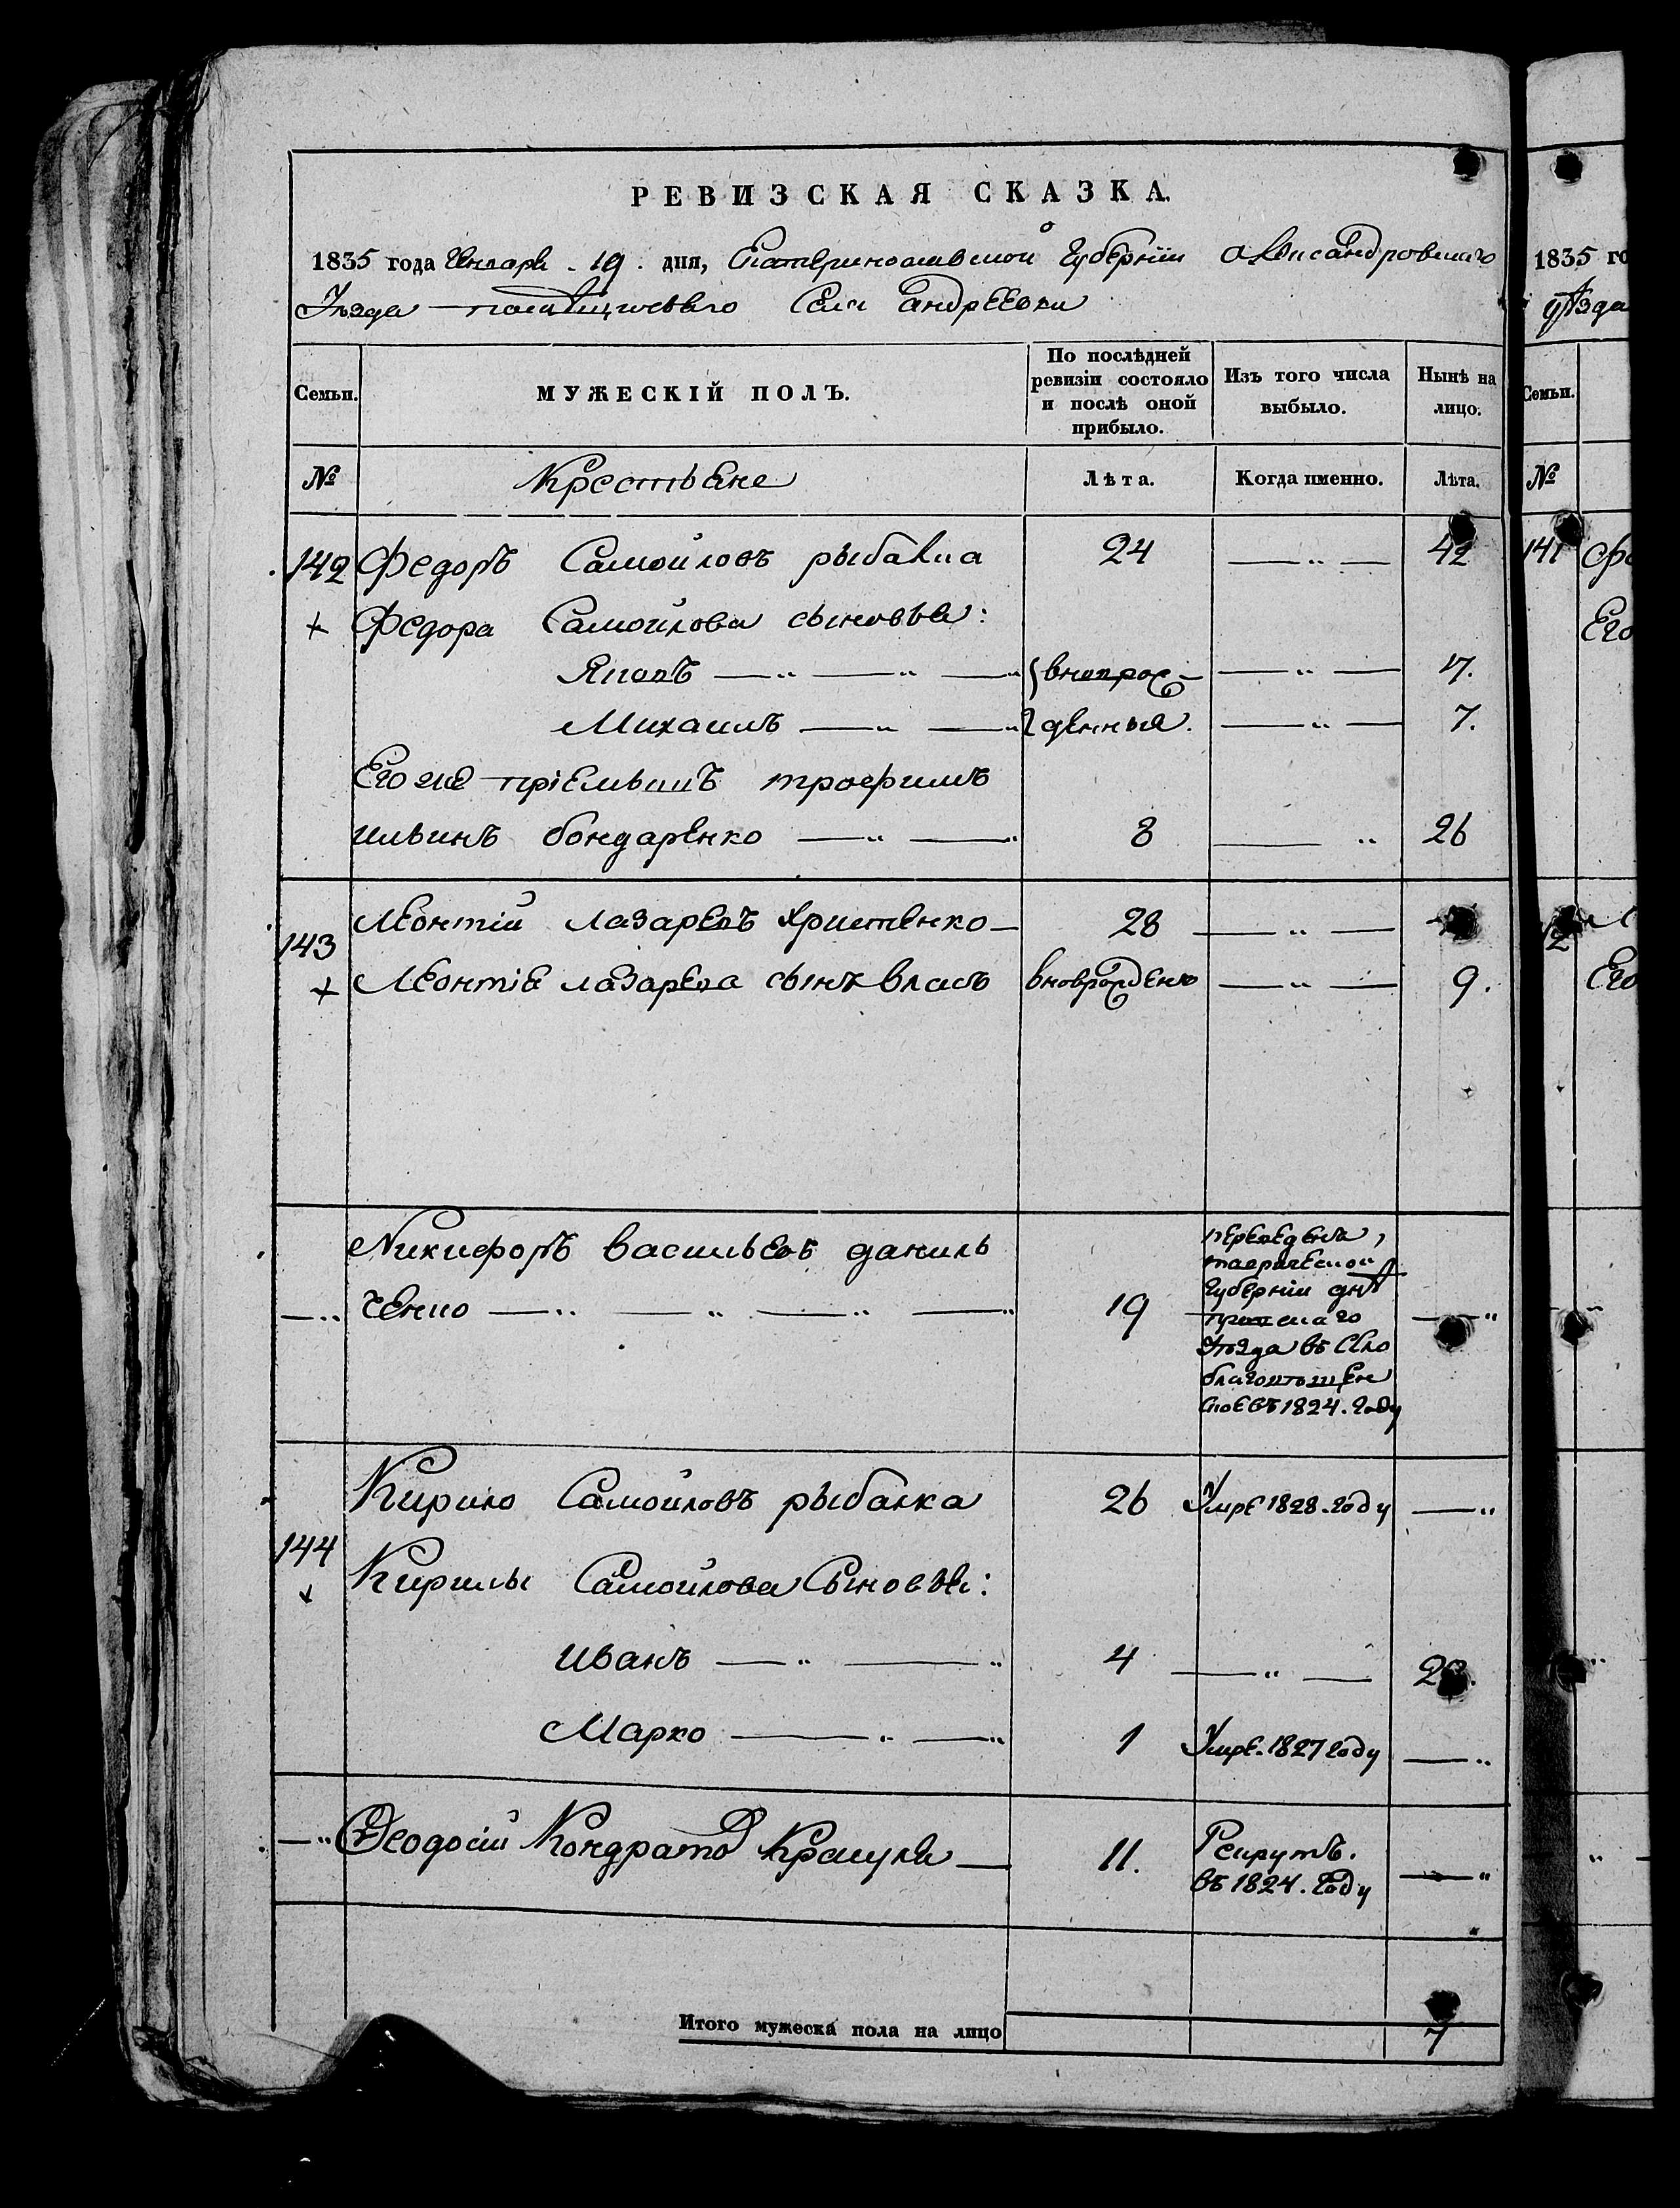 РЕВИЗСКАЯ СКАЗКА.
1835 года Генваря 19. дня, Екатеринославской Губерніи Александровскаго
Уѣзда помѣщичьяго Села андреевки
Семьи.
МУЖЕСКІЙ ПОЛЪ.
По послѣдней ревизіи состояло и послѣ оной прибыло.
Изъ того числа выбыло.
Нынѣ на лицо.
№
Крестьяне
Лѣта.
Когда именно.
Лѣта.
142 Федоръ Самойловъ рыбалка 24 —"— 42
+ Федора Самойлова сыновья:
Яковъ —"—"—" вновърож- —"—
Михаилъ —"—" денныя. —"— 7.
Его же пріемышъ трофимъ
ильинъ бондаренко —"—" 8 —" 26
143 Леонтій лазаревъ христенко — 28 —"—
+ Леонтія лазарева сынъ власъ вноврожденъ —"— 9.
Никифоръ васильевъ даниль
—" ченко —"—"—"—" 19 —"
переведенъ
таврической
Губерніи дне
провскаго
Уѣзда въ Село
благовѣщен
ское въ 1824. Году
Кирило Самойловъ рыбалка 26 Умре 1828. году —"
144
+ Кирилы Самойлова Сыновья:
Иванъ —"—" 4 —"—
Марко —"—" 1 Умре. 1827 году —"
—" Феодосій Кондратов — 11. Рекрутъ. —"
въ 1824. Году
Итого мужеска пола на лицо 7
1835 го
Уѣзда
Семьи.
№
141
Его
Его